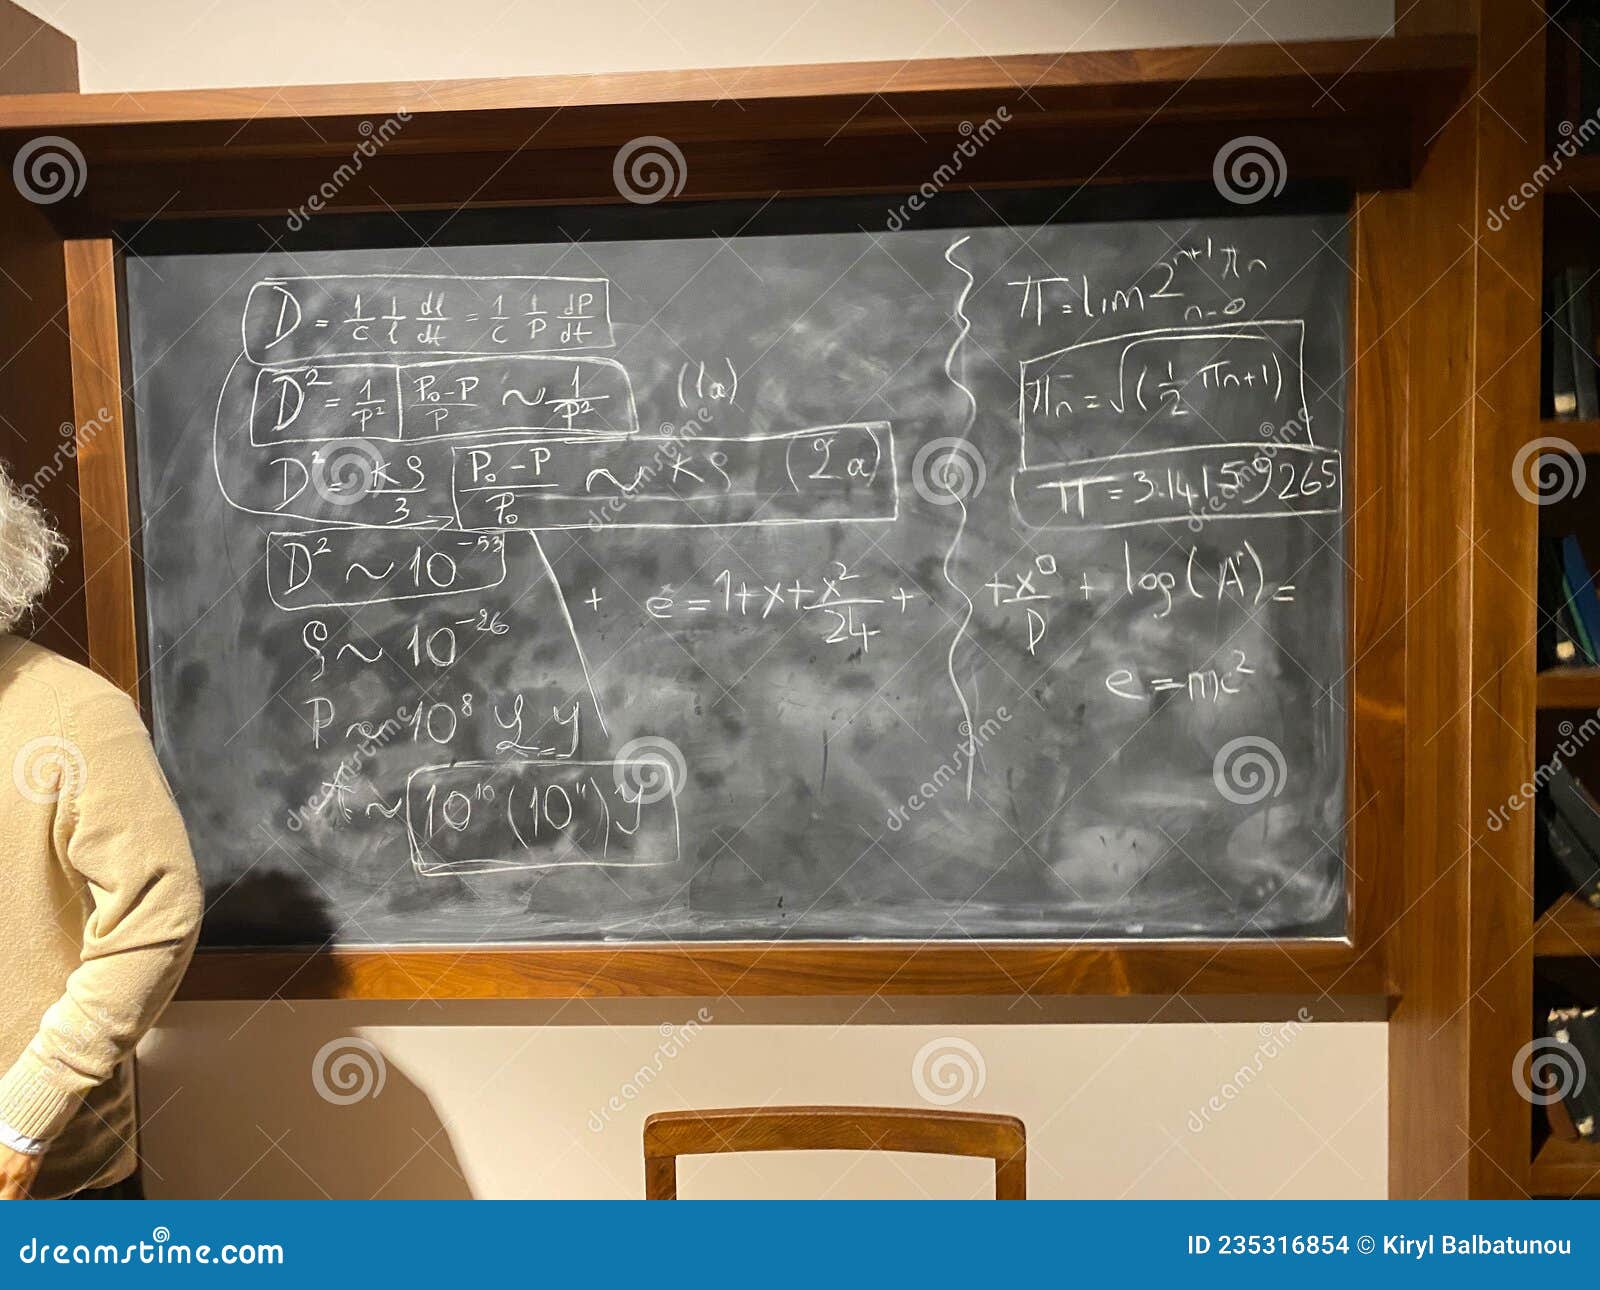 D = 1/c 1/l dl/dt = 1/c 1/P dP/dt
D² = 1/P² P₀-P/P ~ 1/P² (1a)
D² = κρ/3 P₀-P/P₀ ~ κρ (2a)
D² ~ 10⁻⁵³
ρ ~ 10⁻²⁶
P ~ 10⁸ L.y
t ~ 10¹⁰(10¹¹)y
+ e = 1+x+x²/24+
π = lim 2ⁿ⁺¹πn
n-0
πn = √(1/2 πn+1)
π = 3.14159265
+x⁰/p + log(A) =
e = mc²
dreamstime.com
ID 235316854 © Kiryl Balbatunou